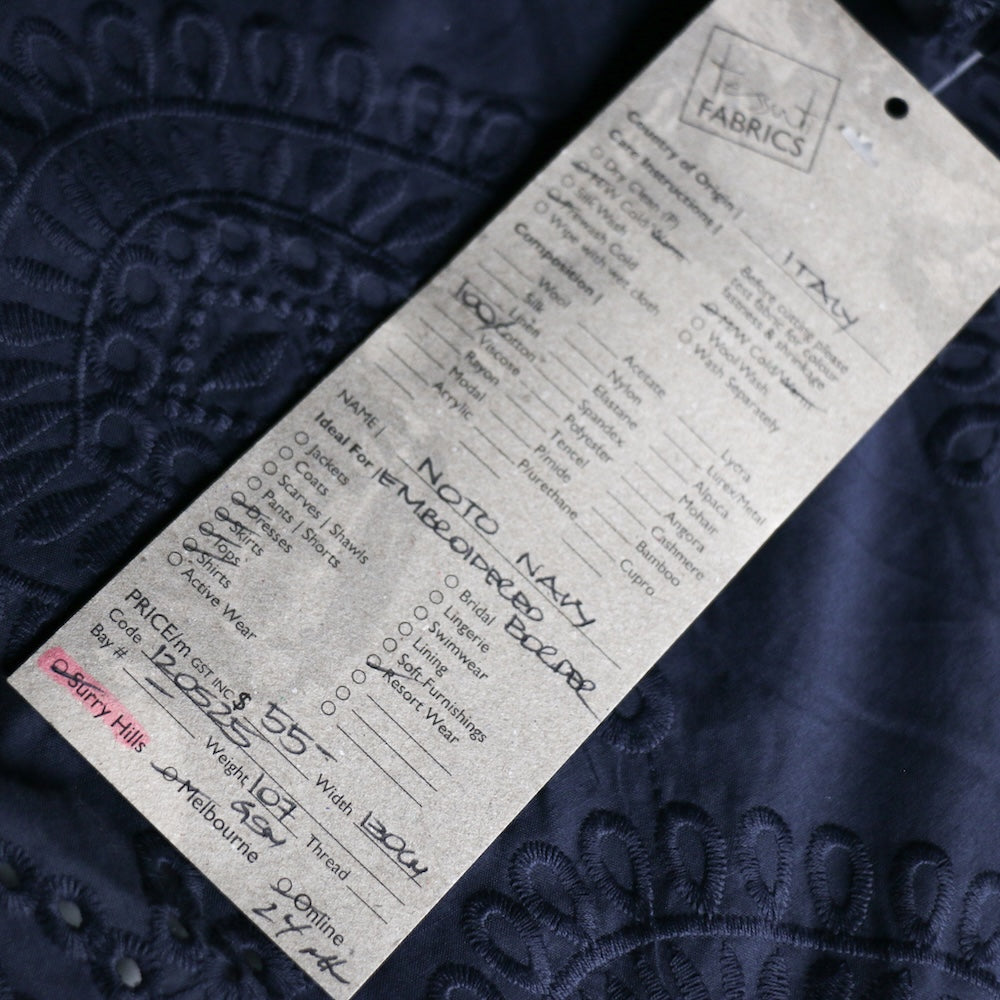 Tessuti
FABRICS
Country of Origin | ITALY
Care Instructions |
Before cutting please
test fabric for colour
fastness & shrinkage
Dry Clean (P)
MW Cold Warm
Silk Wash
Prewash Cold
Wipe with wet cloth
MW Cold/Warm
Wool Wash
Wash Separately
Composition |
Wool
Silk
Linen
100% Cotton
Viscose
Rayon
Modal
Acrylic
Acetate
Nylon
Elastane
Spandex
Polyester
Tencel
Pimide
Plurethane
Lycra
Lurex/Metal
Alpaca
Angora
Mohair
Cashmere
Bamboo
Cupro
NAME | NOTO NAVY
EMBROIDERED BORDER
Ideal For |
Jackets
Coats
Scarves | Shawls
Pants | Shorts
Dresses
Skirts
Tops
Shirts
Active Wear
Bridal
Lingerie
Swimwear
Lining
Soft Furnishings
Resort Wear
PRICE/m GST INC $ 55-
Code 120525
Width 130cm
Bay #
Weight 107 GSM
Thread
Surry Hills
Melbourne
Online